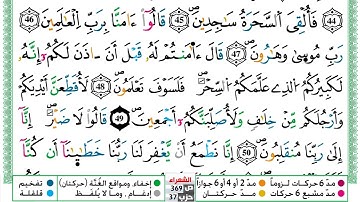 44 فَأُلْقِىَ اَلسَّحَرَةُ سَٰجِدِينَ 45 قَالُوٓاْ ءَامَنَّا بِرَبِّ اِلْعَٰلَمِينَ 46
رَبِّ مُوسَىٰ وَهَٰرُونَ 47 قَالَ ءَا۬مَنتُمْ لَهُۥ قَبْلَ أَنَ اٰذَنَ لَكُمُۥٓ إِنَّهُۥ
لَكَبِيرُكُمُ اُلذِى عَلَّمَكُمُ اُلسِّحْرَ فَلَسَوْفَ تَعْلَمُونَ 48 لَأُقَطِّعَنَّ أَيْدِيَكُمْ
وَأَرْجُلَكُم مِّنْ خِلَٰفٍ وَلَأُصَلِّبَنَّكُمُۥٓ أَجْمَعِينَ 49 قَالُواْ لَا ضَيْرَ إِنَّآ
إِلَىٰ رَبِّنَا مُنقَلِبُونَ 50 إِنَّا نَطْمَعُ أَنْ يَّغْفِرَ لَنَا رَبُّنَا خَطَٰيَٰنَآ أَن كُنَّآ
مدّ 6 حركات لزوماً مدّ 2 أو 4 أو 6 جوازاً إخفاء، ومواقع الغُنَّة (حركتان) تفخيم
مدّ مشبع 6 حركات مدّ حركتان إدغام، وما لا يُلفَظ قلقلة
الشعراء
ص 369
حزب 37